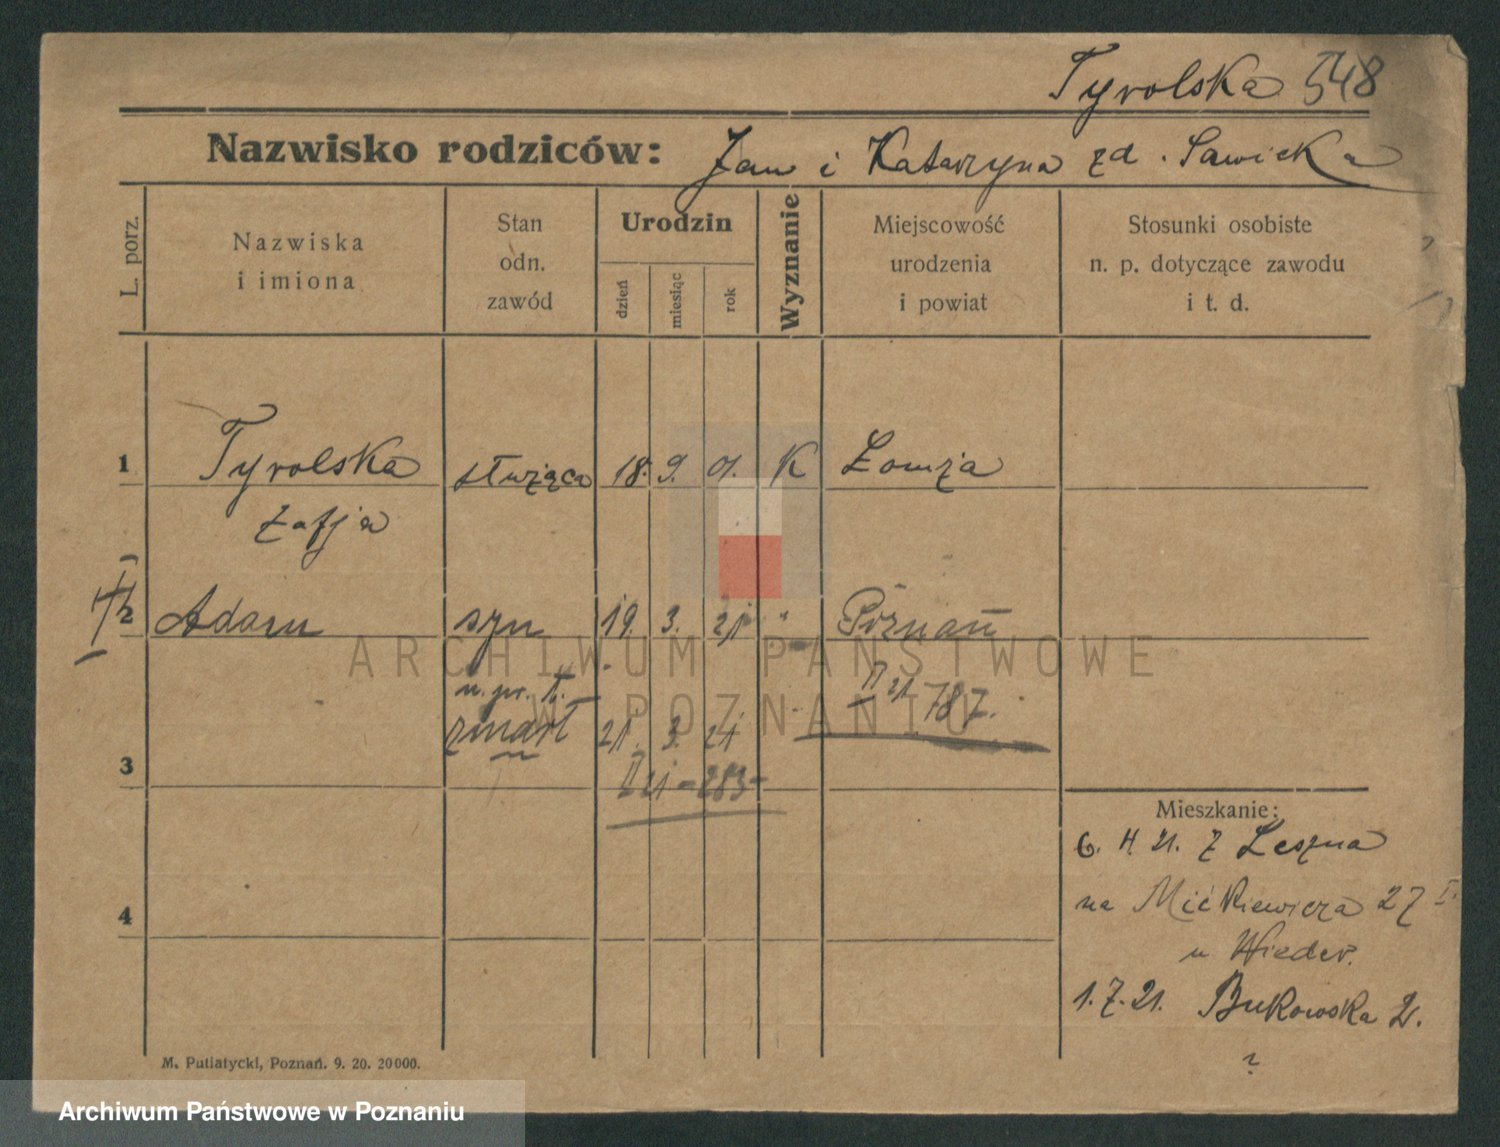 Tyrolska 548
Nazwisko rodziców: Jan i Katarzyna zd. Sawicka
L. porz.
Nazwiska
i imiona
Stan
odn.
zawód
Urodzin
dzień
miesiąc
rok
Wyznanie
Miejscowość
urodzenia
i powiat
Stosunki osobiste
n. p. dotyczące zawodu
i t. d.
1 Tyrolska służąca 18. 9. 01. K Łomża
Zofja
2 Adam syn 19. 3. 21 " Poznań
n. pr. t. II 21 787.
zmarł 21. 3. 21
3 II 21 - 283 -
Mieszkanie:
6. 4. 21. z Leszna
na Mickiewicza 27 I.
4
u Wieder.
1.7.21. Bukowska 2.
?
M. Putiatycki, Poznań. 9. 20. 20000.
ARCHIWUM PAŃSTWOWE
W POZNANIU
Archiwum Państwowe w Poznaniu